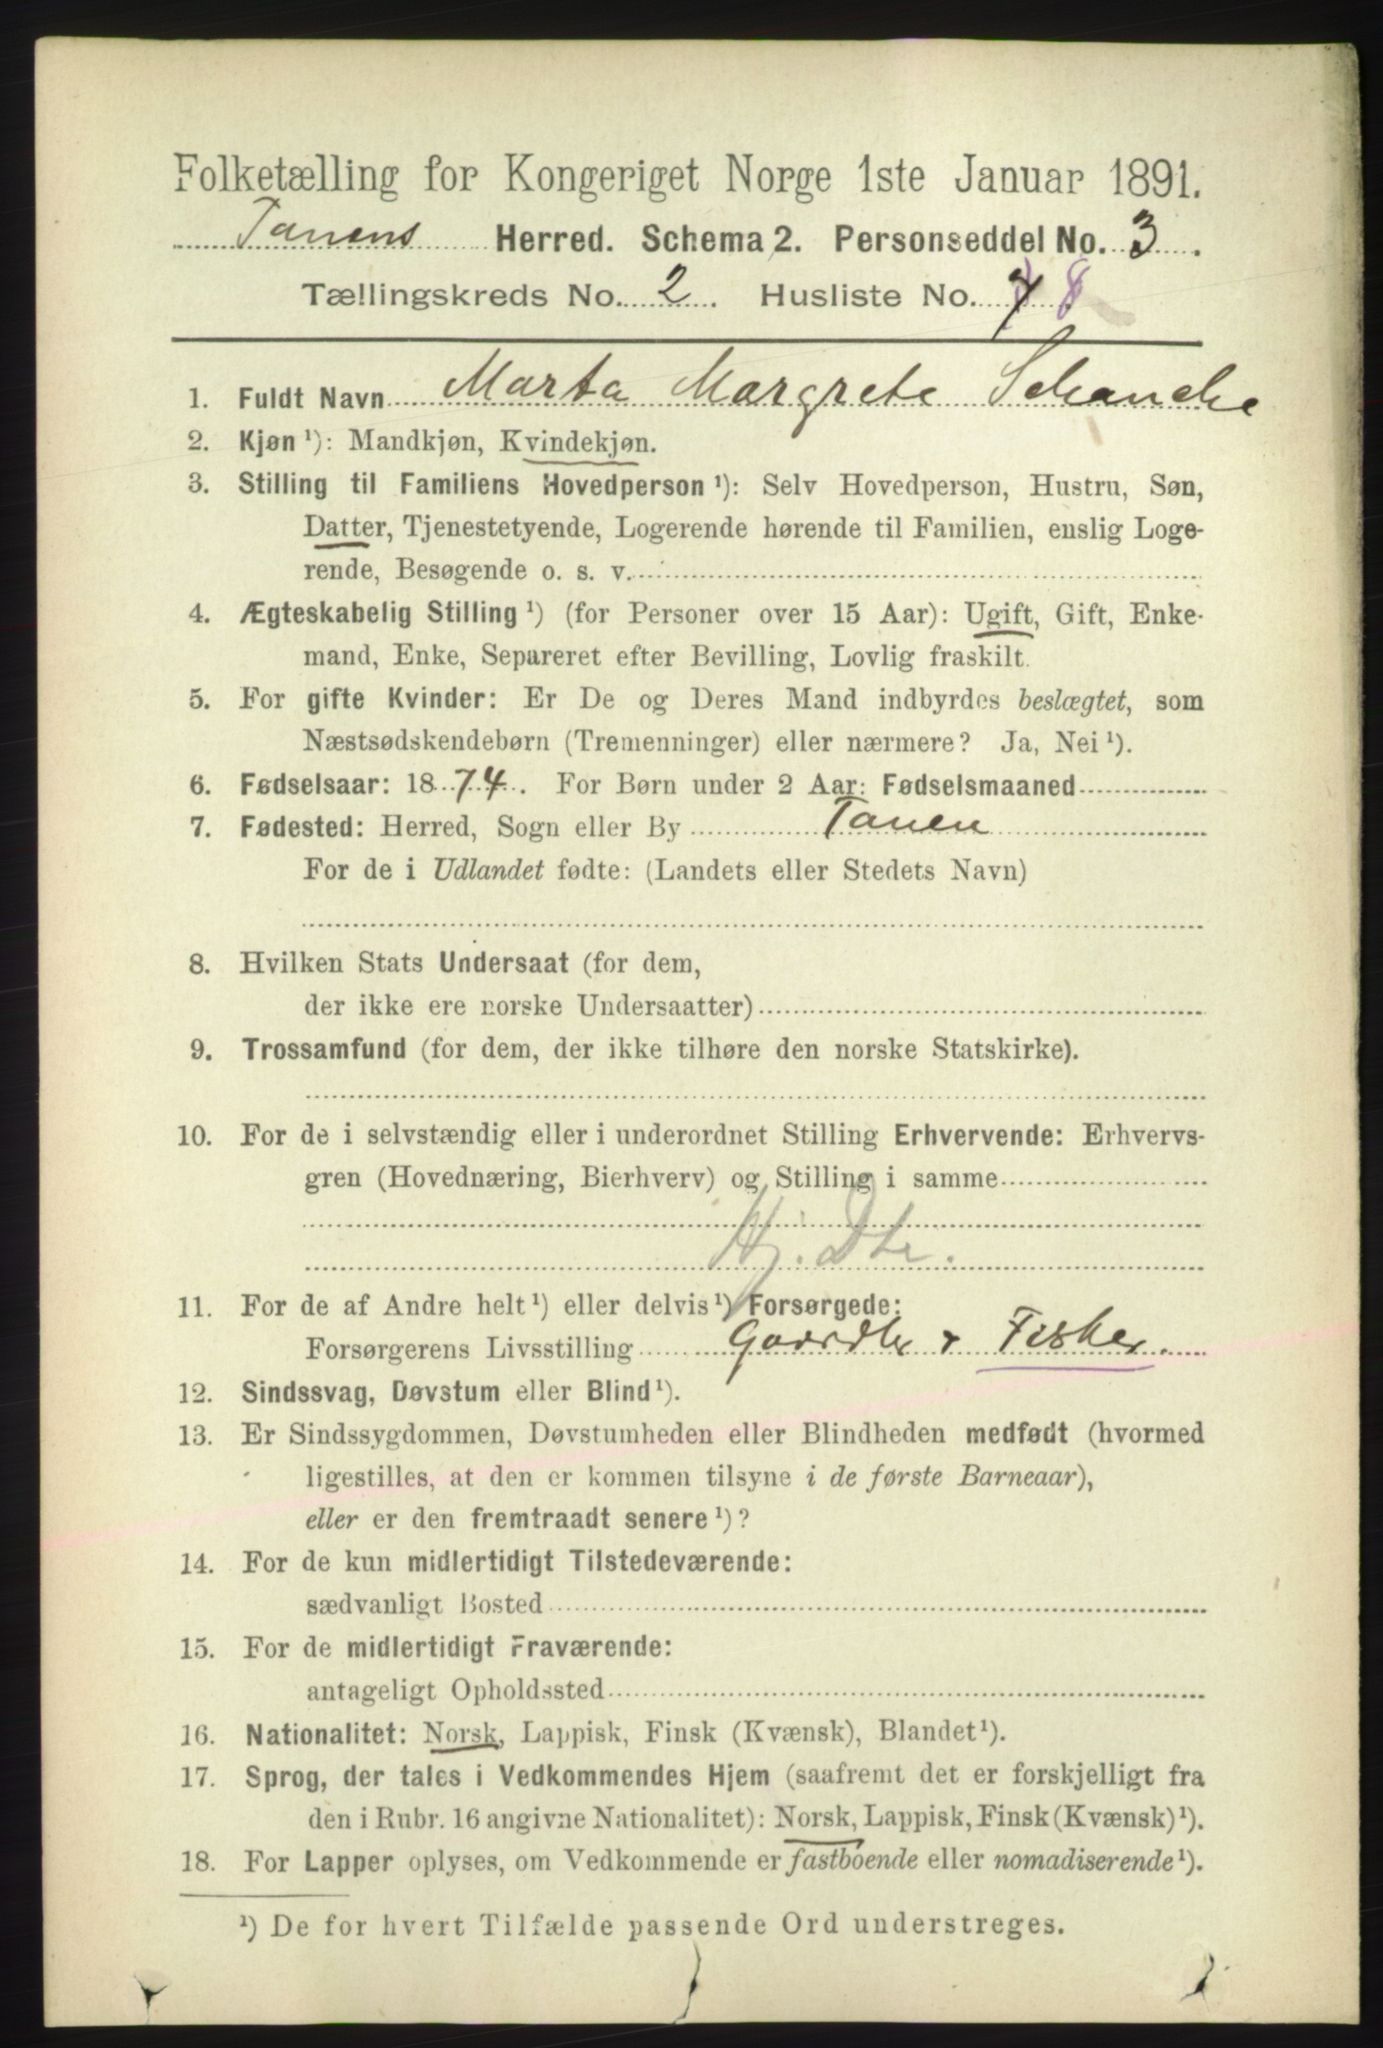 Folketælling for Kongeriget Norge 1ste Januar 1891.
Tanens Herred. Schema 2. Personseddel No. 3.
Tællingskreds No. 2. Husliste No. 8
1. Fuldt Navn Marta Margrete Schanche
2. Kjøn ¹): Mandkjøn, Kvindekjøn.
3. Stilling til Familiens Hovedperson ¹): Selv Hovedperson, Hustru, Søn,
Datter, Tjenestetyende, Logerende hørende til Familien, enslig Loge-
rende, Besøgende o. s. v.
4. Ægteskabelig Stilling ¹) (for Personer over 15 Aar): Ugift, Gift, Enke-
mand, Enke, Separeret efter Bevilling, Lovlig fraskilt.
5. For gifte Kvinder: Er De og Deres Mand indbyrdes beslægtet, som
Næstsødskendebørn (Tremenninger) eller nærmere? Ja, Nei ¹).
6. Fødselsaar: 1874. For Børn under 2 Aar: Fødselsmaaned
7. Fødested: Herred, Sogn eller By Tanen
For de i Udlandet fødte: (Landets eller Stedets Navn)
8. Hvilken Stats Undersaat (for dem,
der ikke ere norske Undersaatter)
9. Trossamfund (for dem, der ikke tilhøre den norske Statskirke).
10. For de i selvstændig eller i underordnet Stilling Erhvervende: Erhvervs-
gren (Hovednæring, Bierhverv) og Stilling i samme
Hj. Dtr.
11. For de af Andre helt ¹) eller delvis ¹) Forsørgede:
Forsørgerens Livsstilling Gaardbr Fisker.
12. Sindssvag, Døvstum eller Blind ¹).
13. Er Sindssygdommen, Døvstumheden eller Blindheden medfødt (hvormed
ligestilles, at den er kommen tilsyne i de første Barneaar),
eller er den fremtraadt senere ¹)?
14. For de kun midlertidigt Tilstedeværende:
sædvanligt Bosted
15. For de midlertidigt Fraværende:
antageligt Opholdssted
16. Nationalitet: Norsk, Lappisk, Finsk (Kvænsk), Blandet ¹).
17. Sprog, der tales i Vedkommendes Hjem (saafremt det er forskjelligt fra
den i Rubr. 16 angivne Nationalitet): Norsk, Lappisk, Finsk (Kvænsk) ¹).
18. For Lapper oplyses, om Vedkommende er fastboende eller nomadiserende ¹).
¹) De for hvert Tilfælde passende Ord understreges.